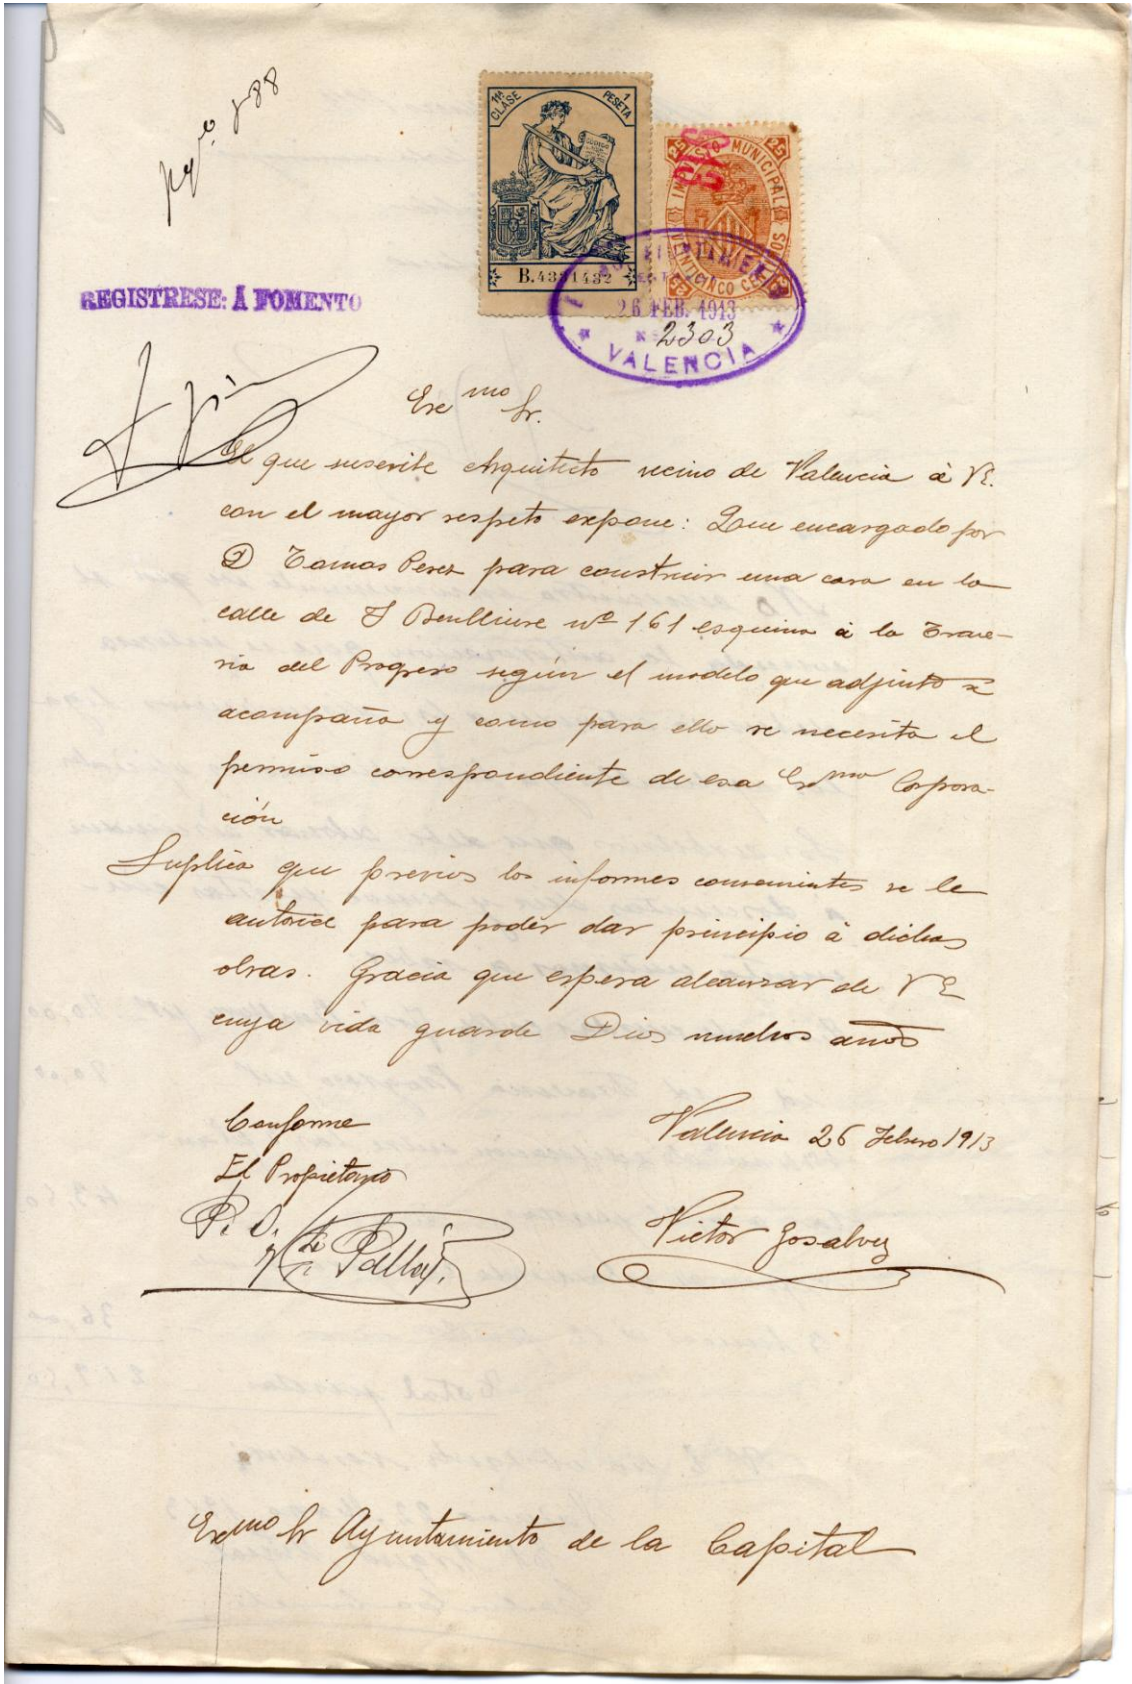 11ª CLASE
1 PESETA
B.4351432
25 IMPUESTO MUNICIPAL 25
VEINTICINCO CENTIMOS
AYUNTAMIENTO
26 FEB. 1913
2303
VALENCIA
REGISTRESE: A FOMENTO
Exc mo Sr.
El que suscribe Arquitecto vecino de Valencia á VE.
con el mayor respeto expone: Que encargado por
D Tomas Perez para construir una casa en la
calle de J Benlliure nº 161 esquina á la Trave-
sia del Progreso según el modelo que adjunto se
acompaña y como para ello se necesita el
permiso correspondiente de esa Exmo Corpora-
ción
Suplica que previos los informes convenientes se le
autorice para poder dar principio á dichas
obras. Gracia que espera alcanzar de VE
cuya vida guarde Dios muchos años
Conforme
El Propietario
P. O.
Pallás
Valencia 26 Febrero 1913
Victor Gosalvez
Excmo Sr Ayuntamiento de la Capital